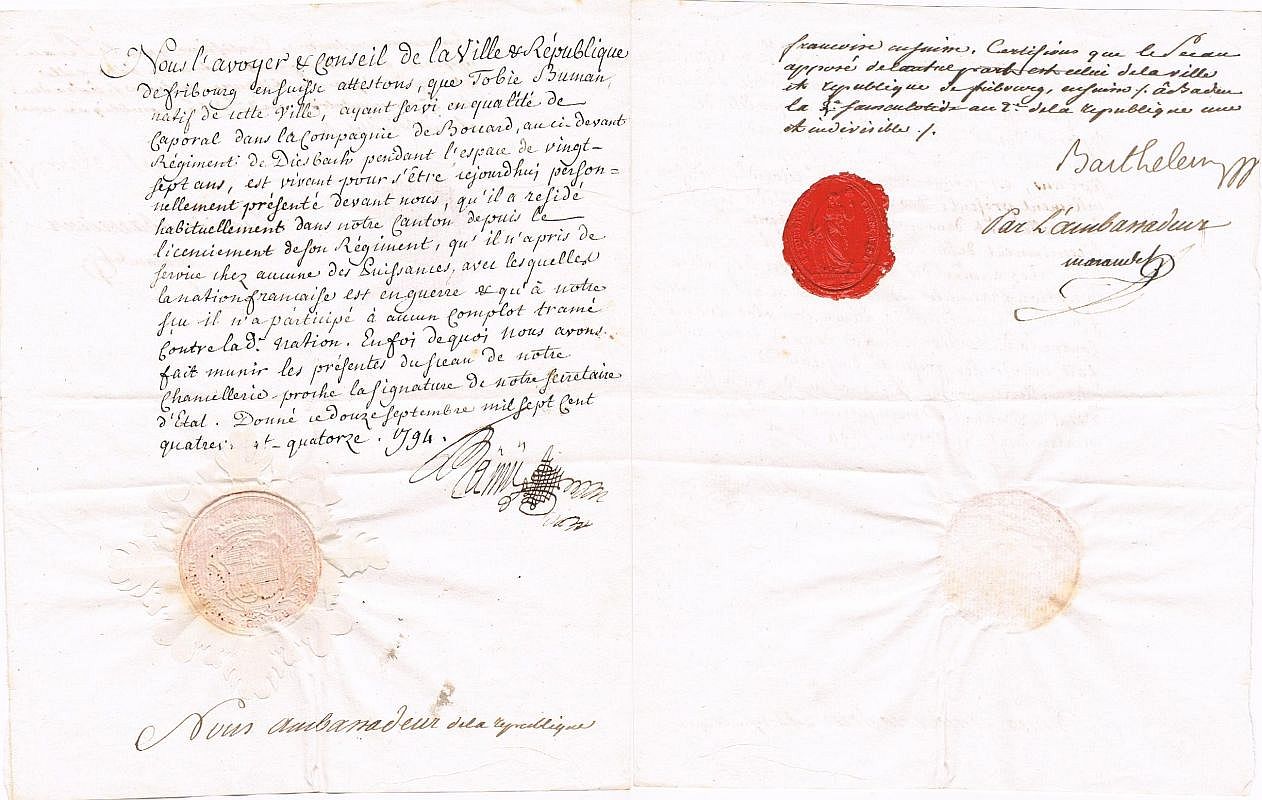 Nous l'avoyer & Conseil de la Ville & République
de fribourg en suisse attestons, que Tobie Buman,
natif de cette Ville, ayant servi en qualité de
Caporal dans la Compagnie de Boccard, au ci-devant
Régiment de Diesbach pendant l'espace de vingt-
sept ans, est vivant pour s'être cejourdhuj person-
nellement présenté devant nous, qu'il a residé
habituellement dans notre Canton depuis le
licenciement de son Régiment, qu'il n'a pris de
service chez aucune des Puissances, avec lesquelles
la nation francaise est en guerre & qu'à notre
sçu il n'a participé à aucun Complot tramé
Contre lad.e nation. En foi de quoi nous avons
fait munir les présentes du sceau de notre
Chancellerie proche la signature de notre secretaire
d'Etat. Donné ce douze septembre mil sept Cent
quatrev. et quatorze. 1794.
Nous ambassadeur de la republique
francoise en suisse. Certifions que le Sceau
apposé de l'autre part est celui de la ville
et republique de fribourg, en suisse /. à Baden
la sansculotide an 2.e de la republique une
et indivisible /.
Barthelemy
Par l'ambassadeur
marandet